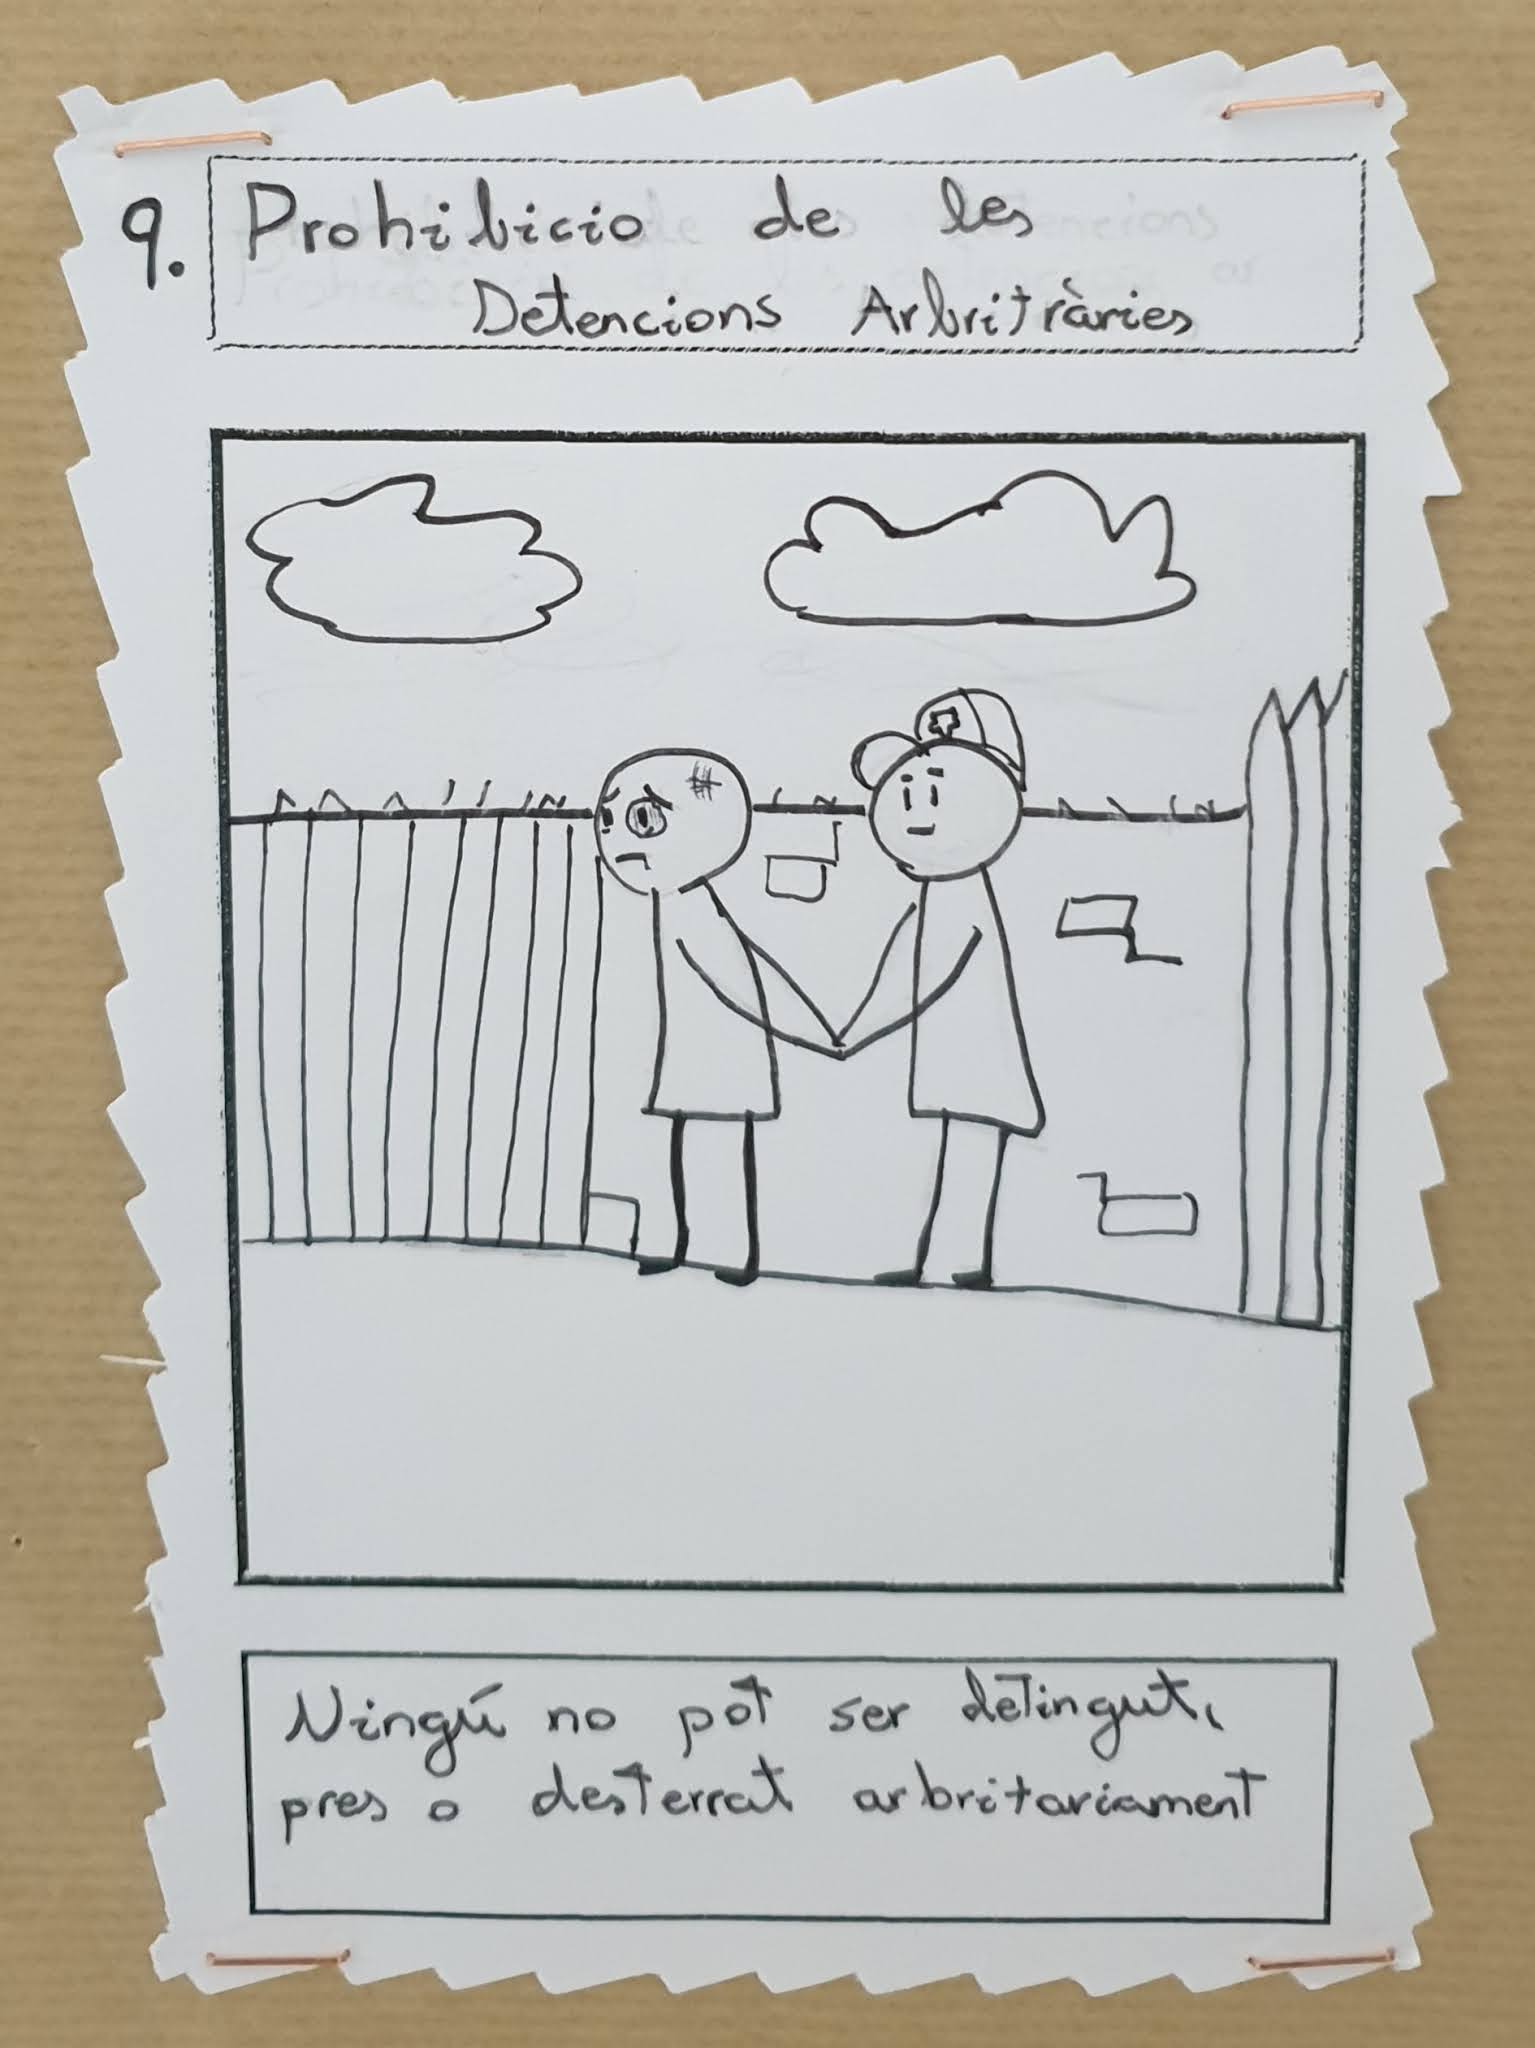 9. Prohibicio de les
Detencions Arbritràries
Ningú no pot ser detingut,
pres o desterrat arbritariament